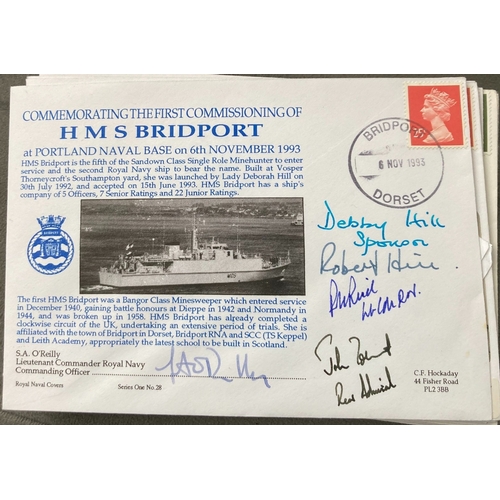 COMMEMORATING THE FIRST COMMISSIONING OF
HMS BRIDPORT
at PORTLAND NAVAL BASE on 6th NOVEMBER 1993
HMS Bridport is the fifth of the Sandown Class Single Role Minehunter to enter
service and the second Royal Navy ship to bear the name. Built at Vosper
Thorneycroft's Southampton yard, she was launched by Lady Deborah Hill on
30th July 1992, and accepted on 15th June 1993. HMS Bridport has a ship's
company of 5 Officers, 7 Senior Ratings and 22 Junior Ratings.
The first HMS Bridport was a Bangor Class Minesweeper which entered service
in December 1940, gaining battle honours at Dieppe in 1942 and Normandy in
1944, and was broken up in 1958. HMS Bridport has already completed a
clockwise circuit of the UK, undertaking an extensive period of trials. She is
affiliated with the town of Bridport in Dorset, Bridport RNA and SCC (TS Keppel)
and Leith Academy, appropriately the latest school to be built in Scotland.
S.A. O'Reilly
Lieutenant Commander Royal Navy
Commanding Officer
Royal Naval Covers
Series One No.28
BRIDPORT
6 NOV 1993
DORSET
Debby Hill
Sponsor
Robert Hill
Rear Admiral
C.F. Hockaday
44 Fisher Road
PL2 3BB